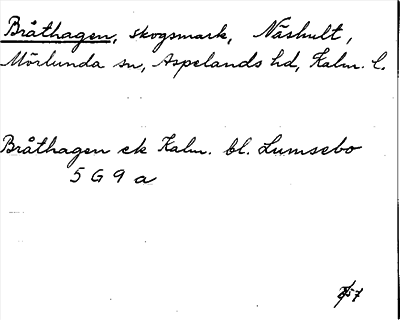 Bråthagen, skogsmark, Näshult,
Mörlunda sn, Aspelands hd, Kalm. l.
Bråthagen ek Kalm. bl. Lumsebo
5 G 9 a